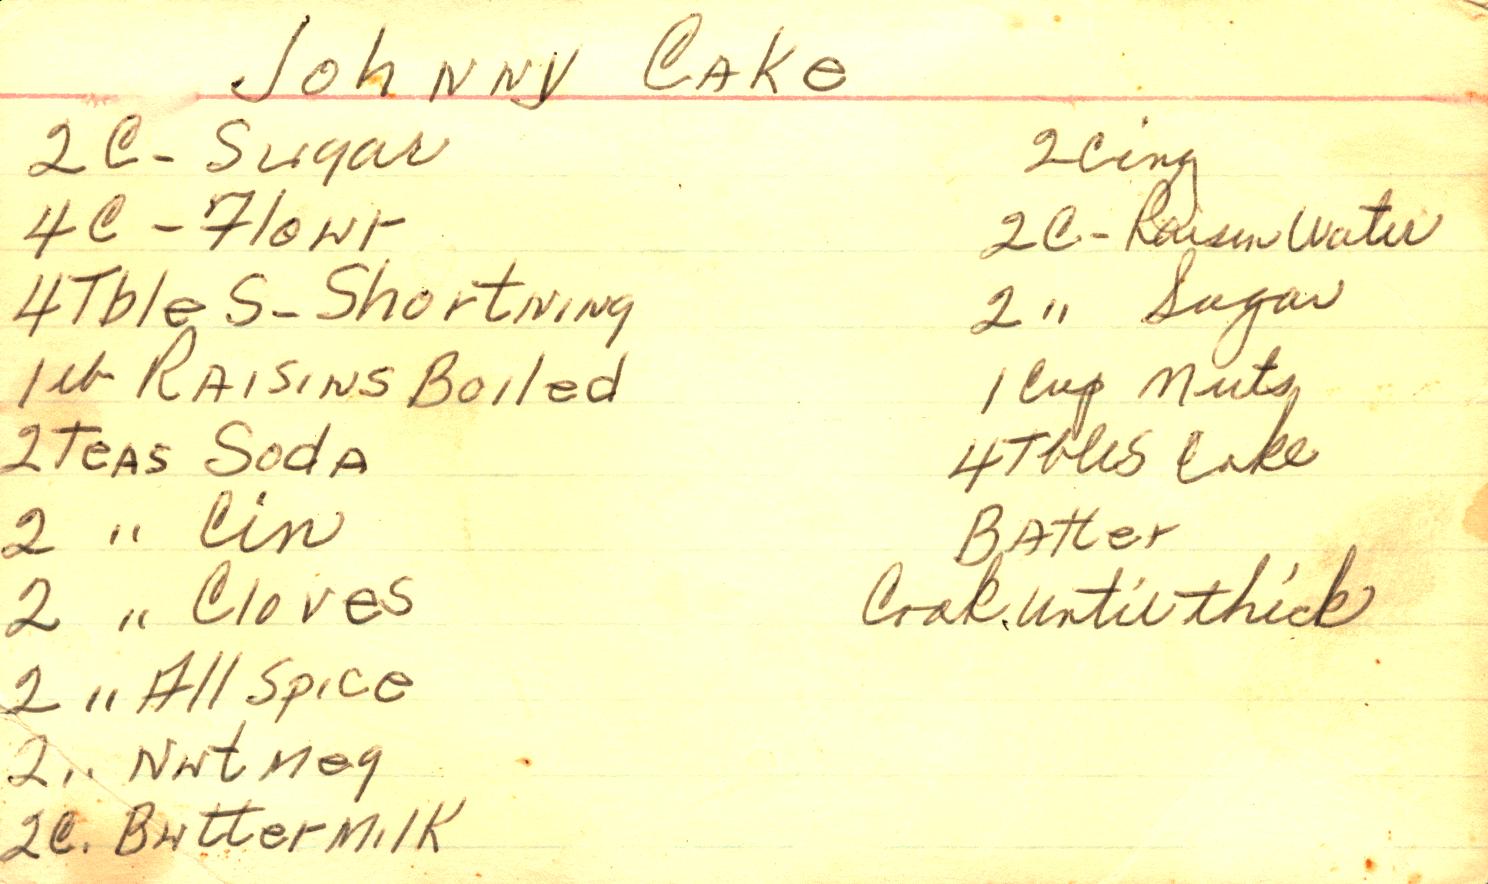 Johnny Cake
2 C - Sugar
4 C - Flour
4 Tble S - Shortning
1 lb Raisins Boiled
2 Teas Soda
2 " Cin
2 " Cloves
2 " All Spice
2 " Nutmeg
2 C. Buttermilk
2 Cing
2 C - Raisin Water
2 " Sugar
1 Cup Nuts
4 Tbles Cake
Batter
Cook until thick